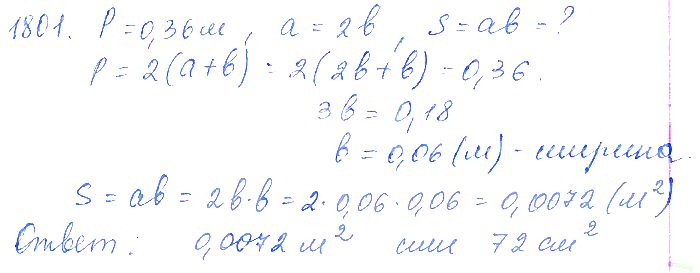 1801. P = 0,36 м, a = 2b, S = ab = ?
P = 2(a+b) = 2(2b+b) = 0,36.
3b = 0,18
b = 0,06 (м) - ширина.
S = ab = 2b·b = 2·0,06·0,06 = 0,0072 (м²)
Ответ: 0,0072 м² или 72 см²